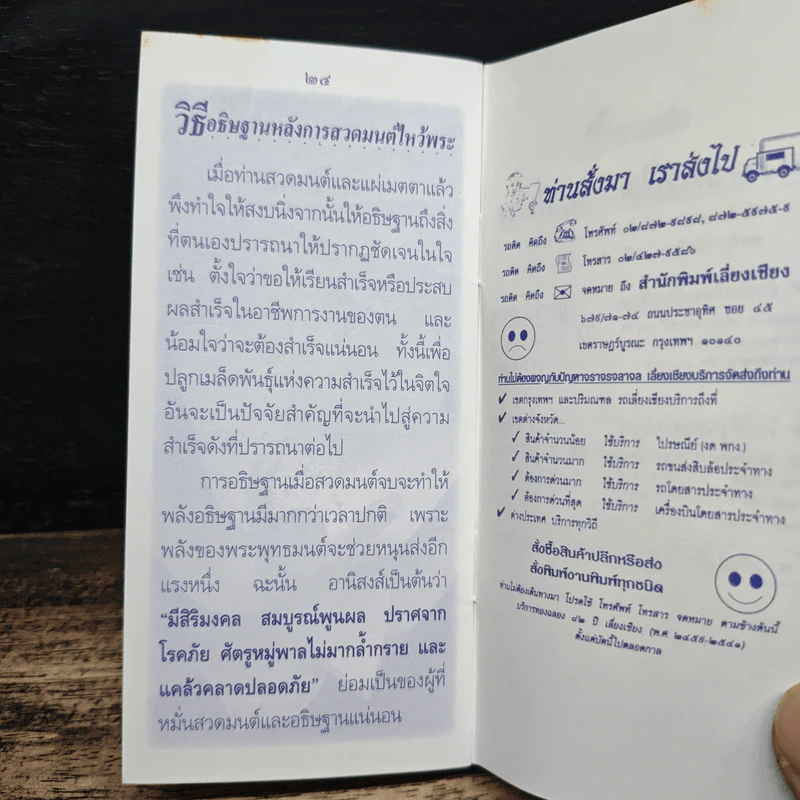 ๒๔
วิธีอธิษฐานหลังการสวดมนต์ไหว้พระ
เมื่อท่านสวดมนต์และแผ่เมตตาแล้ว
พึงทำใจให้สงบนิ่งจากนั้นให้อธิษฐานถึงสิ่ง
ที่ตนเองปรารถนาให้ปรากฏชัดเจนในใจ
เช่น ตั้งใจว่าขอให้เรียนสำเร็จหรือประสบ
ผลสำเร็จในอาชีพการงานของตน และ
น้อมใจว่าจะต้องสำเร็จแน่นอน ทั้งนี้เพื่อ
ปลูกเมล็ดพันธุ์แห่งความสำเร็จไว้ในจิตใจ
อันจะเป็นปัจจัยสำคัญที่จะนำไปสู่ความ
สำเร็จดังที่ปรารถนาต่อไป
การอธิษฐานเมื่อสวดมนต์จบจะทำให้
พลังอธิษฐานมีมากกว่าเวลาปกติ เพราะ
พลังของพระพุทธมนต์จะช่วยหนุนส่งอีก
แรงหนึ่ง ฉะนั้น อานิสงส์เป็นต้นว่า
“มีสิริมงคล สมบูรณ์พูนผล ปราศจาก
โรคภัย ศัตรูหมู่พาลไม่มากล้ำกราย และ
แคล้วคลาดปลอดภัย” ย่อมเป็นของผู้ที่
หมั่นสวดมนต์และอธิษฐานแน่นอน
ท่านสั่งมา เราส่งไป
รถติด คิดถึง โทรศัพท์ ๐๒/๘๗๒-๙๘๙๘, ๘๗๒-๕๙๗๕-๙
รถติด คิดถึง โทรสาร ๐๒/๔๒๗-๙๕๘๖
รถติด คิดถึง จดหมาย ถึง สำนักพิมพ์เลี่ยงเชียง
๖๗๙/๗๑-๗๔ ถนนประชาอุทิศ ซอย ๔๕
เขตราษฎร์บูรณะ กรุงเทพฯ ๑๐๑๔๐
ท่านไม่ต้องผจญกับปัญหาจราจรจลาจล เลี่ยงเชียงบริการจัดส่งถึงท่าน
✔ เขตกรุงเทพฯ และปริมณฑล รถเลี่ยงเชียงบริการถึงที่
✔ เขตต่างจังหวัด...
✓ สินค้าจำนวนน้อย ใช้บริการ ไปรษณีย์ (งด พกง.)
✓ สินค้าจำนวนมาก ใช้บริการ รถขนส่งสิบล้อประจำทาง
✓ ต้องการด่วนมาก ใช้บริการ รถโดยสารประจำทาง
✓ ต้องการด่วนที่สุด ใช้บริการ เครื่องบินโดยสารประจำทาง
✔ ต่างประเทศ บริการทุกวิถี
สั่งซื้อสินค้าปลีกหรือส่ง
สั่งพิมพ์งานพิมพ์ทุกชนิด
ท่านไม่ต้องเดินทางมา โปรดใช้ โทรศัพท์ โทรสาร จดหมาย ตามข้างต้นนี้
บริการฉลอง ๘๒ ปี เลี่ยงเชียง (พ.ศ. ๒๔๕๙-๒๕๔๑)
ตั้งแต่บัดนี้ไปตลอดกาล